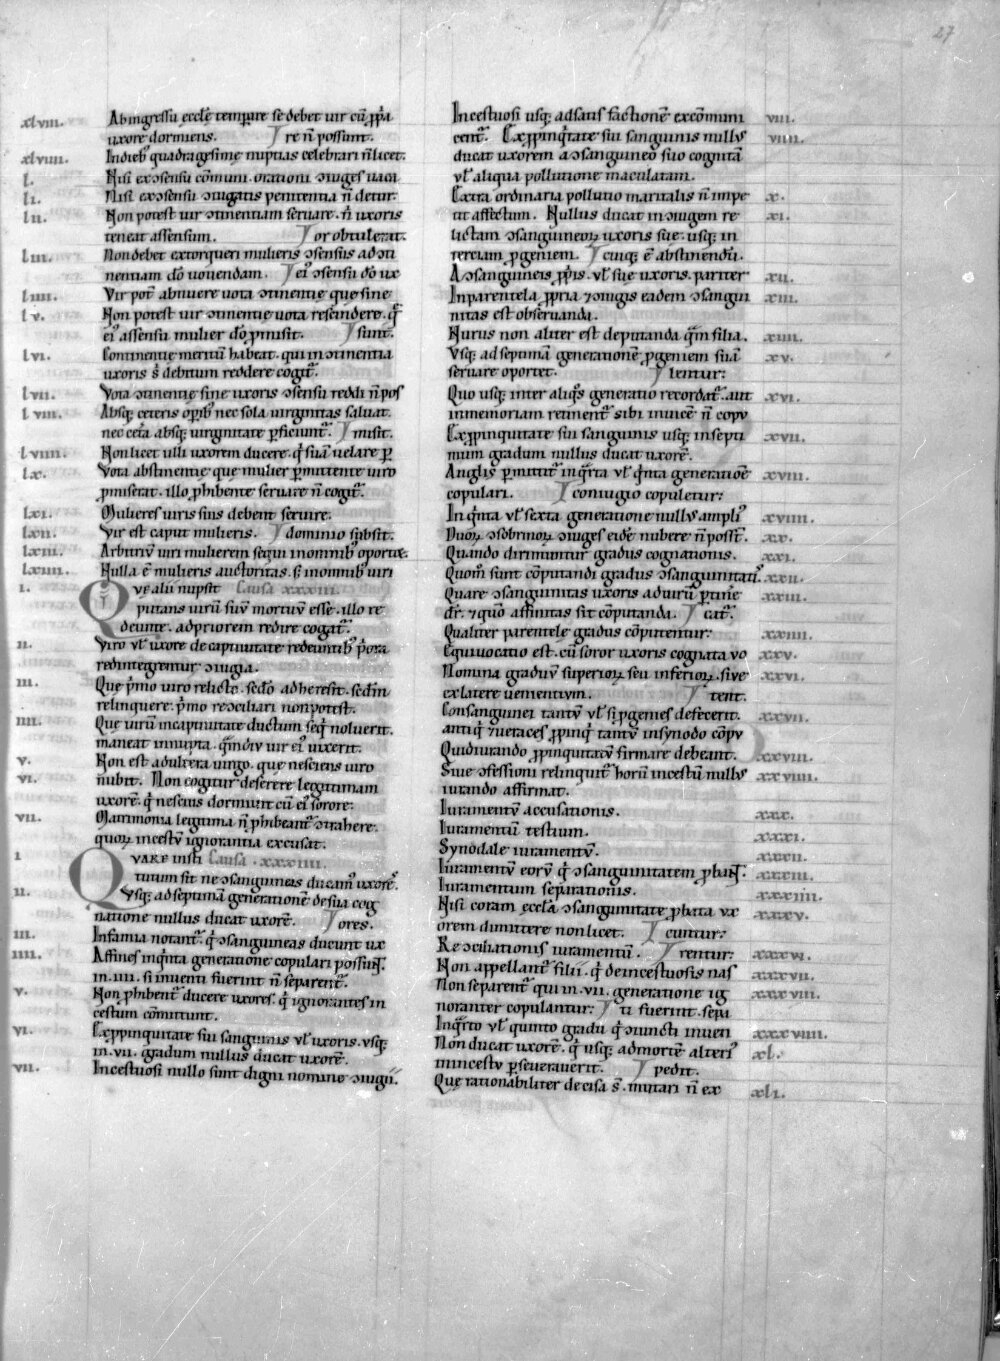 27
xlviii. Ab ingressu eccłę temp̲are se debet uir cū p̲p̃a
uxore dormiens. re ñ possunt.
xlviiii. In dieb; quadragesimę nuptias celebrari ñ licet.
l. Nisi ex ɔsensu cōmuni orationi ɔiuges uaca
li. Nisi ex ɔsensu ɔiugatis penitentia ñ detur.
lii. Non potest uir ɔtinentiam seruare. ñ uxoris
teneat assensum. or obtulerit.
liii. Non debet extorqueri mulieris ɔsensus ad ɔti
nentiam do uouendam. ei' ɔsensu do ux
liiii. Vir pot̃ abnuere uota ɔtinentie que sine
lv. Non potest uir ɔtinentie uota rescindere. q̃
ei' assensu mulier do p̲misit. sunt.
lvi. Continentie meritū habeat. qui in ɔtinentia
uxoris s; debitum reddere cogit̃.
lvii. Vota ɔtinentie sine uxoris ɔsensu reddi ñ pos
lviii. Absq; ceteris op̲ib; nec sola uirginitas saluat.
nec cet̃a absq; uirginitate p̲ficiunt̃. misit.
lviiii. Non licet ulli uxorem ducere. q̃ suā uelare p̲
lx. Vota abstinentie que mulier p̲mittente uiro
p̲miserat. illo p̲hibente seruare ñ cogit̃.
lxi. Mulieres uiris suis debent seruire.
lxii. Vir est caput mulieris. dominio subsit.
lxiii. Arbitriū uiri mulierem sequi in omnib; oportet.
lxiiii. Nulla ē mulieris auctoritas. s; in omnib; uiri
i. Qve alii nupsit Causa xxxiiii.
putans uirū suū mortuū esse. illo re
deunte. ad priorem redire cogat̃.
ii. Viro uł uxore de captiuitate redeuntib; p̃ora
redintegrentur ɔiugia.
iii. Que p̃mo uiro relicto. secdo adheresit. secdm
relinquere. p̃mo reɔciliari non potest.
iiii. Que uirū in captiuitate ductum seq̃ noluerit.
maneat innupta. q̃mdiu uir ei' uixerit.
v. Non est adultera uirgo. que nesciens uiro
vi. nubit. Non cogitur deserere legitimam
uxorē. q̃ nescius dormiuit cū ei' sorore.
vii. Matrimonia legitima ñ p̲hibeant̃ ɔtrahere.
quor̃ incestū ignorantia excusat.
i Qvare uisti Causa .xxxiiii.
tutum sit ne ɔsanguineas ducam' uxores.
ii. Vsq; ad septimā generationē de sua cog
natione nullus ducat uxorē. ores.
iii. Infamia notant̃. q̃ ɔsanguineas ducunt ux
iiii. Affines in q̃nta generatione copulari possunt.
in .iiii. si inuenti fuerint ñ separent̃.
v. Non p̲hibent̃ ducere uxores. q̃ ignorantes in
cestum cōmittunt.
vi. Ex p̲pinquitate sui sanguinis uł uxoris. usq;
in .vii. gradum nullus ducat uxorē.
vii. Incestuosi nullo sunt digni nomine ɔiugii.
Incestuosi usq; ad satisfactionē excōmuni viii.
cent̃. Ex p̲pinq̃tate sui sanguinis null' viiii.
ducat uxorem a ɔsanguineo suo cognitā
uł aliqua pollutione maculatam.
Extra ordinaria pollutio maritalis ñ impe x.
tit affectum. Nullus ducat in ɔiugem re xi.
lictam ɔsanguineor̃ uxoris sue. usq; in
tercium p̲geniem. cuiq; ē abstinendū.
A ɔsanguineis p̲p̃iis. uł sue uxoris. pariter xii.
In parentela p̲pria ⁊ ɔiugis eadem ɔsangui xiii.
nitas est obseruanda.
Nurus non aliter est deputanda q̃m filia. xiiii.
Vsq; ad septimā generationē p̲geniem suā xv.
seruare oportet. lentur.
Quo usq; inter aliq̃s generatio recordat̃. aut xvi.
in memoriam retinent̃ sibi inuicē ñ copu
Ex p̲pinquitate sui sanguinis usq; in septi xvii.
mum gradum nullus ducat uxorē.
Anglis p̲mittit̃ in q̃rta uł q̃nta generatiōe xviii.
copulari. coniugio copuletur.
In q̃nta uł sexta generatione null' ampli' xviiii.
Duor̃ ɔsobrinor̃ ɔiuges eidē nubere ñ posst̃. xx.
Quando dirimuntur gradus cognationis. xxi.
Quom̃ sunt cōputandi gradus ɔsanguinitat'. xxii.
Quare ɔsanguinitas uxoris ad uirū p̲tine xxiii.
dr̃. ⁊ quo affinitas sit cōputanda. cat̃.
Qualiter parentele gradus cōputentur. xxiiii.
Equiuocatio est. cū soror uxoris cognata uo xxv.
Nomina graduū superior̃ seu inferior̃. siue xxvi.
ex latere uenientium. tent.
Consanguinei tantū uł si p̲genies defecerit. xxvii.
antiq̃ ⁊ ueraces p̲pinq̃ tantū in synodo cōpu
Quid iurando p̲pinquitatū firmare debeant. xxviii.
Siue ɔfessioni relinquit̃ horū incestū null' xxviiii.
iurando affirmat.
Iuramentū accusationis. xxx.
Iuramentū testium. xxxi.
Synodale iuramentū. xxxii.
Iuramentū eorū q̃ ɔsanguinitatem p̲bant. xxxiii.
Iuramentum separationis. xxxiiii.
Nisi coram eccła ɔsanguinitate p̲bata ux xxxv.
orem dimittere non licet. cuntur.
Reɔciliationis iuramentū. rentur. xxxvi.
Non appellant̃ filii. q̃ de incestuosis nas xxxvii.
Non separent̃ qui in .vii. generatione ig xxxviii.
noranter copulantur. ti fuerint. sepa
In q̃rto uł quinto gradu q̃ ɔiuncti inuen xxxviiii.
Non ducat uxorē. q̃ usq; ad mortē alteri' xl.
in incestu p̲seuerauerit. pedit.
Que rationabiliter decisa s̄. mutari ñ ex xli.